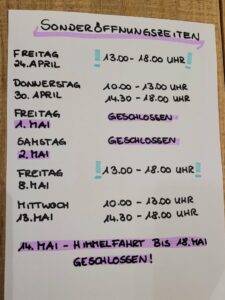 SONDERÖFFNUNGSZEITEN
FREITAG 13.00 - 18.00 UHR
24. APRIL
DONNERSTAG 10.00 - 13.00 UHR
30. APRIL 14.30 - 18.00 UHR
FREITAG GESCHLOSSEN
1. MAI
SAMSTAG GESCHLOSSEN
2. MAI
FREITAG 13.00 - 18.00 UHR
8. MAI
MITTWOCH 10.00 - 13.00 UHR
13. MAI 14.30 - 18.00 UHR
14. MAI - HIMMELFAHRT BIS 18. MAI
GESCHLOSSEN!